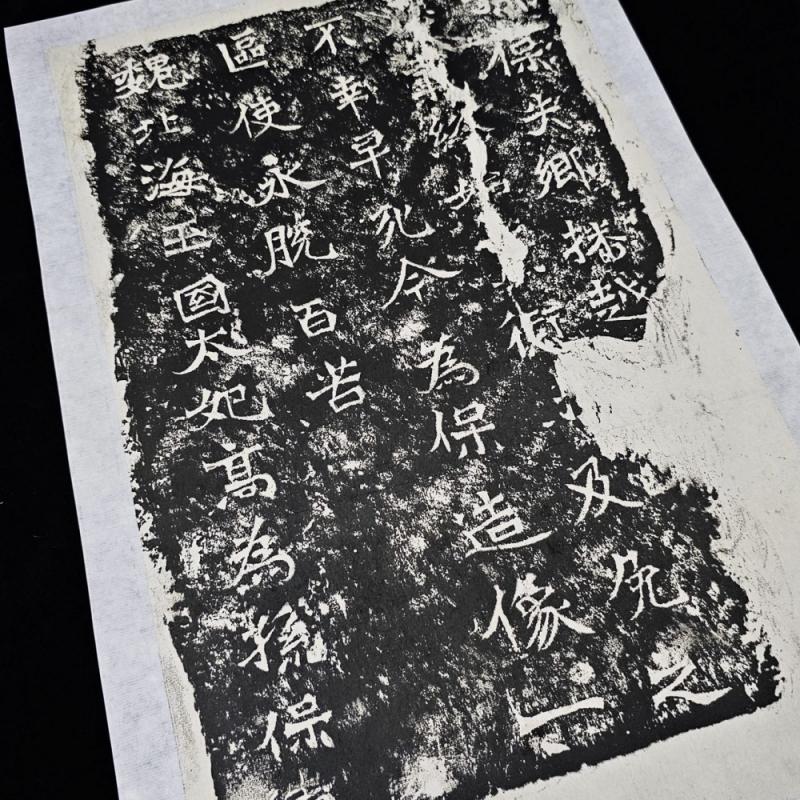 保失鄉播越
始及之
不幸早死今為保造像一
區使永脫百苦
魏北海王國太妃高為孫保